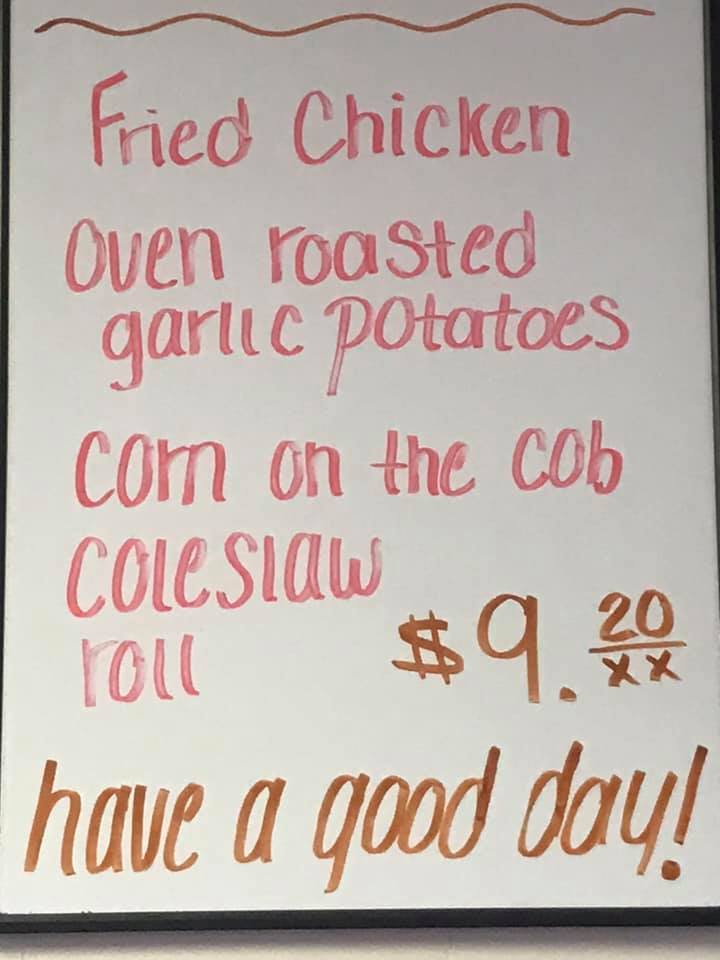 Fried Chicken
Oven roasted
garlic potatoes
corn on the cob
coleslaw
roll
$9.20/xx
have a good day!